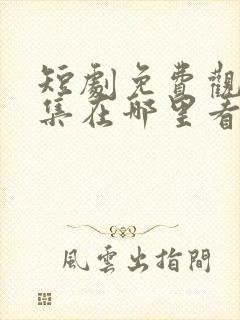 短劇免費觀
集在哪里看
風雲出指間